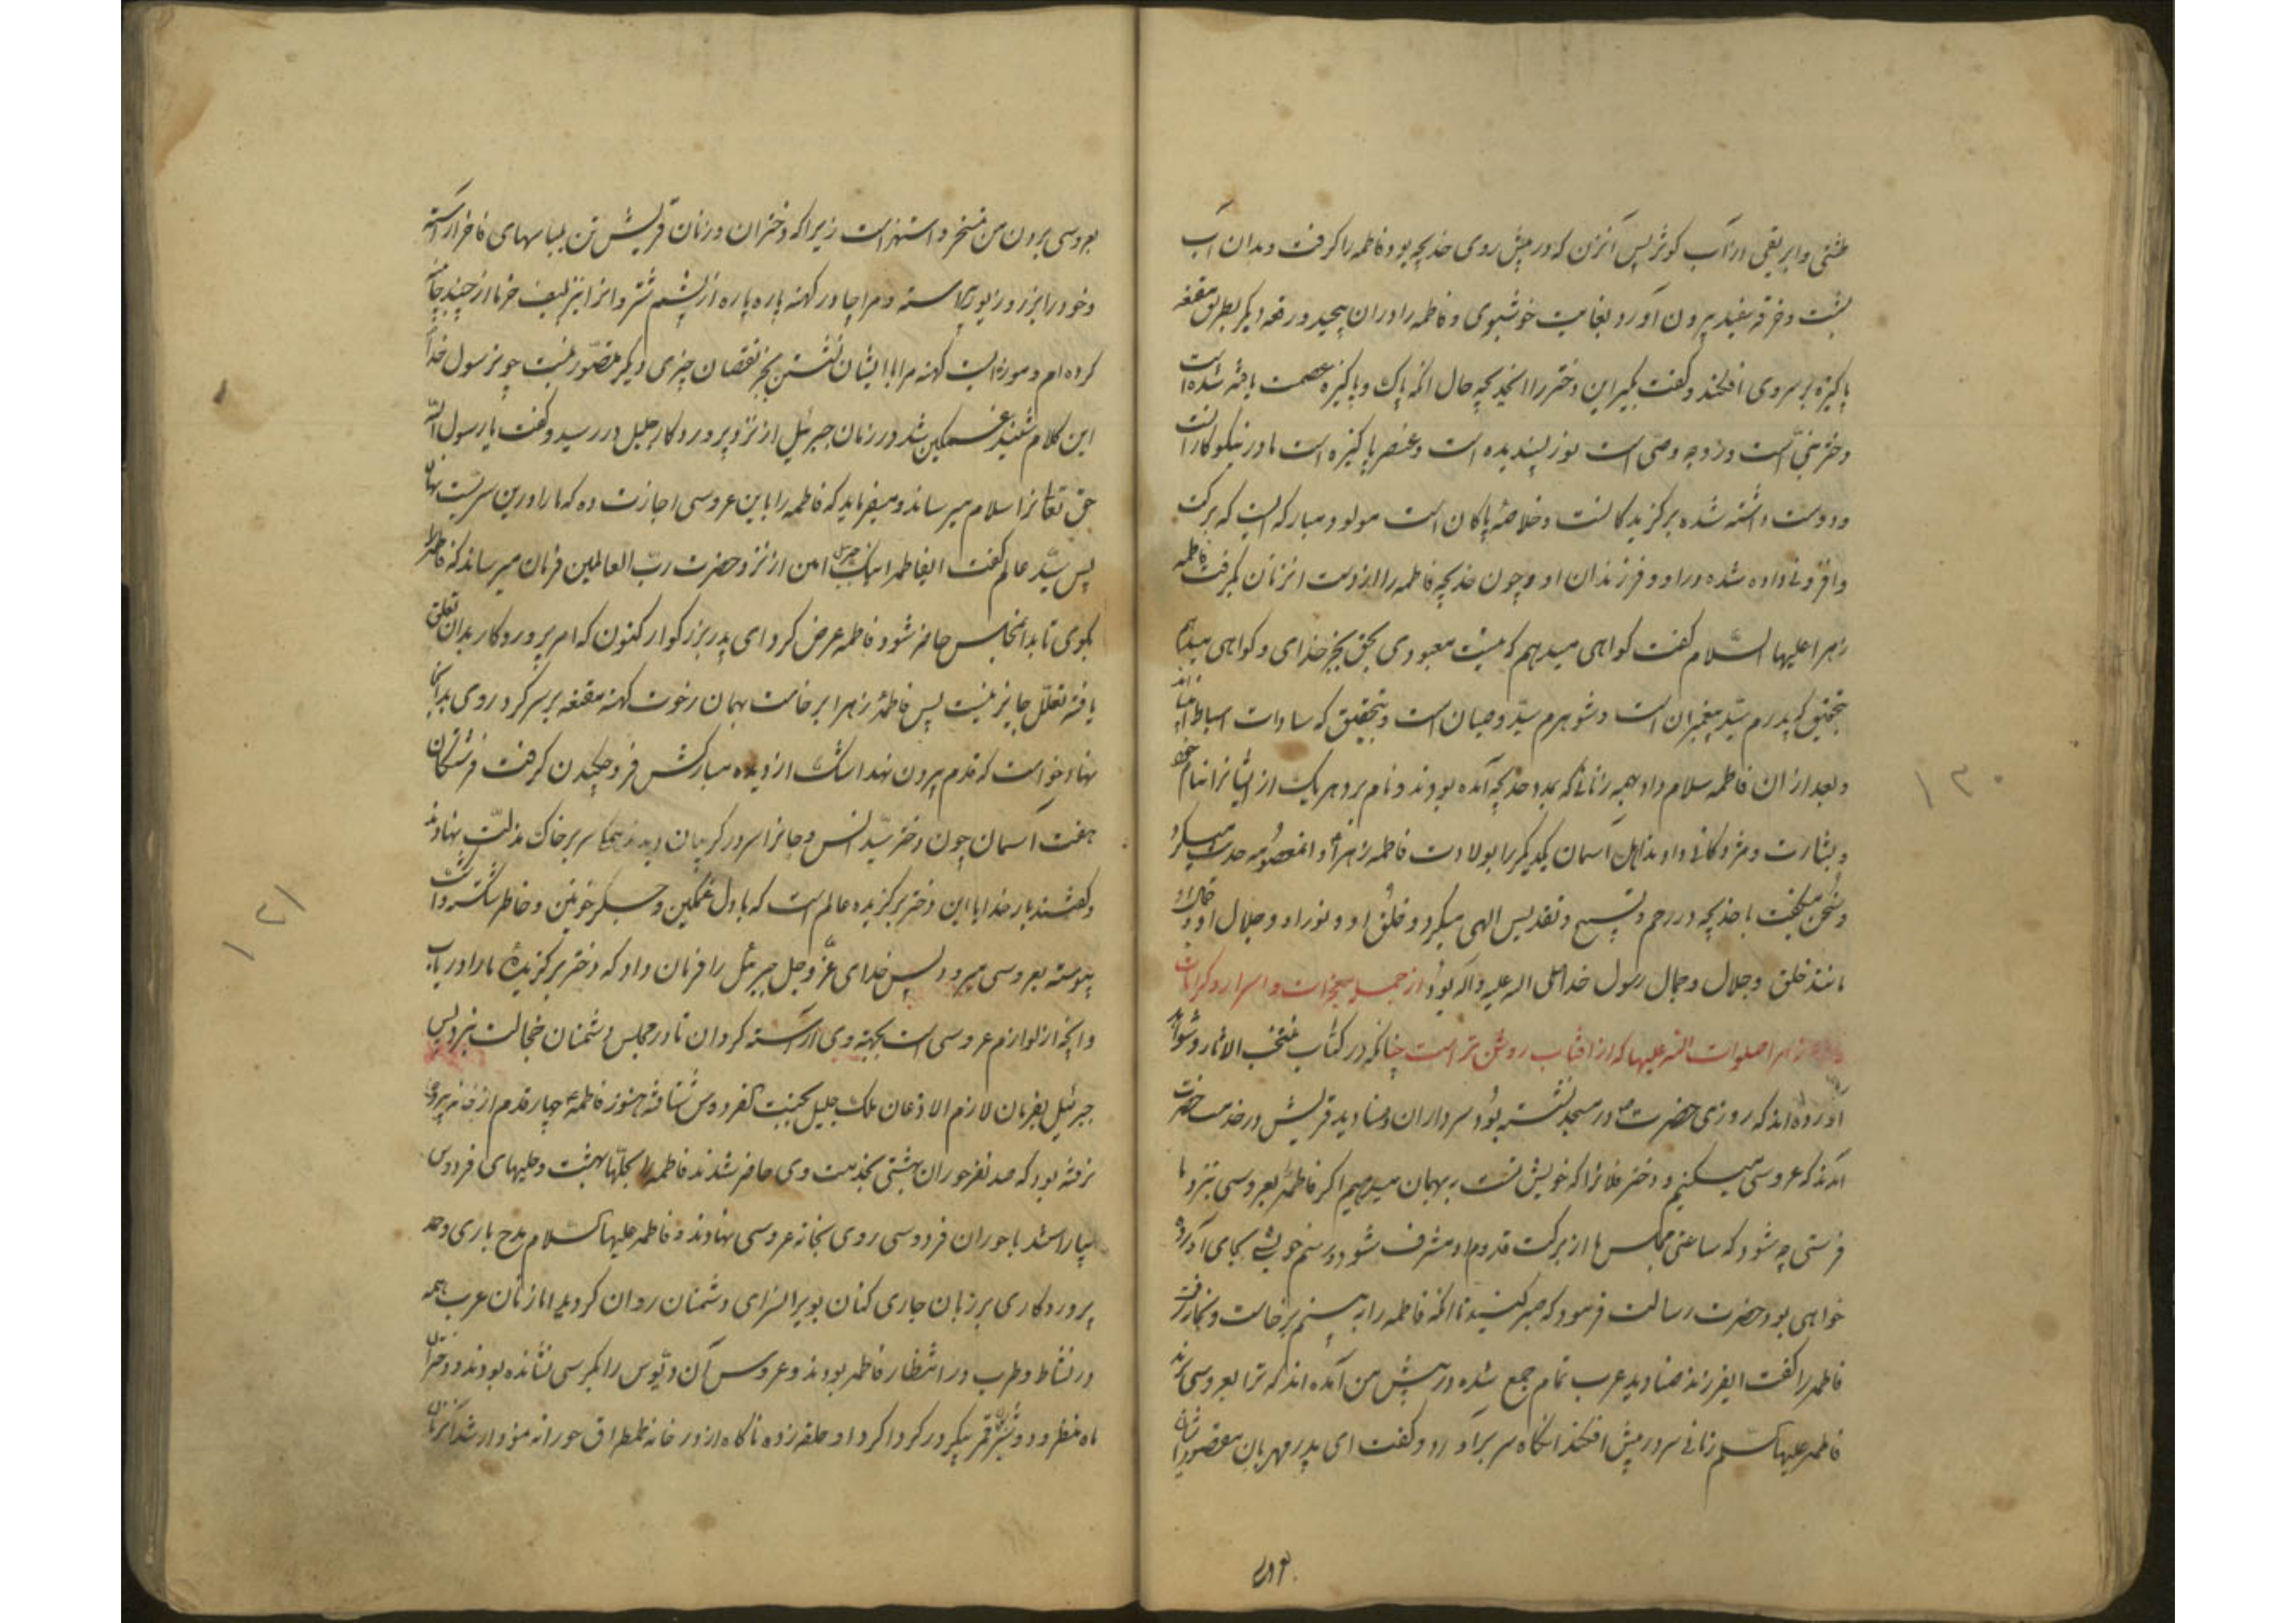 طشتی و ابریقی از آب کوثر پس آنزن که در پیش روی خدیجه بود فاطمه را کرفت و بدان آب
بشست و خرقه سفید بیرون آورد بغایت خوشبوی و فاطمه را در ان پیچید و رقعه دیکر بطریق مقنعه
پاکیزه بر سر وی افکند و کفت بکیر این دختر را ایخدیجه حال انکه پاک و پاکیزه عصمت یافته شده است
دختر نبی است و زوجه وصی است نور پسندیده است و عنصر پاکیزه است مادر نیکوکار انست
و دوست داشته شده برکزیدکانست و خلاصه پاکان است مولود مبارکه ایست که برکت
و افزونی داده شده در او و فرزندان او و چون خدیجه فاطمه را از دست انزنان بکرفت فاطمه
زهرا علیها السلام کفت کواهی میدهم که نیست معبودی بحق بجز خدای و کواهی میدهم
بتحقیق که پدرم سید پیغمبران است و شوهرم سید وصیان است و بتحقیق که سادات اسباط
و بعد از ان فاطمه سلام داد بهمه زنانی که بمدد خدیجه آمده بودند و نام برد هر یک از ایشانرا بنام خود
و بشارت و مژدکانی دادند اهل آسمان یکدیکر را بولادت فاطمه زهرا و انمعصومه حدیث میکرد
و سخن میکفت با خدیجه در رحم و تسبیح و تقدیس الهی میکرد و خلق او و نور او و جلال او و
مانند خلق و جلال و جمال رسول خدا صلی الله علیه و اله بود از جمله معجزات و اسرار و کرامات
زهرا صلوات الله علیها که از افتاب روشن تر است چنانکه در کتاب منتخب الاثار و شواهد
آورده اند که روزی حضرت در مسجد نشسته بود سرداران و صنادید قریش در خدمت حضرت
آمدند که عروسی میکنیم و دختر فلانرا که خویش تست به بهمان میدهیم اکر فاطمه را بعروسی نزد ما
فرستی چه شود که ساعتی مجلس ما از برکت قدوم او مشرف شود و رسم خویشی بجای آورده
خواهی بود حضرت رسالت فرمود که صبر کنید تا انکه فاطمه را به بینم برخاست و بخانه رفت
فاطمه را کفت ایفرزند صنادید عرب تمام جمع شده در پیش من آمده اند که ترا بعروسی برند
فاطمه علیها السلم زمانی سر در پیش افکند انکاه سر براورد و کفت ای پدر مهربان مقصود ایشان
بعروسی بردن من تمسخر و استهزاست زیرا که دختران و زنان قریش تن بلباسهای فاخر آراسته
و خود را بزر و زیور آراسته و مرا چادر کهنه پاره پاره از پشم شتر و انرا نیز بلیف خرما از چند جا پینه
کرده ام و موزه ایست کهنه مرا با ایشان نشستن بجز نقصان چیزی دیکر متصور نیست چون رسول خدا
این کلام شنید غمکین شد در زمان جبرئیل از نزد پروردکار جلیل در رسید و کفت یا رسول الله
حق تعالی ترا سلام میرساند و میفرماید که فاطمه را باین عروسی اجازت ده که ما را درین سریست نهان
پس سید عالم کفت ایفاطمه اینک جبرئیل امین از نزد حضرت رب العالمین فرمان میرساند که فاطمه را
بکوی تا بدانمجلس حاضر شود فاطمه عرض کرد ای پدر بزرکوار کنون که امر پروردکار بدان تعلق
یافته تعلل جایز نیست پس فاطمه زهرا برخاست بهمان رخوت کهنه مقنعه بر سر کرد روی بدانجا
نهاد خواست که قدم بیرون نهد اشک از دیده مبارکش فرو چکیدن کرفت فرشتکان
هفت آسمان چون دختر سید انس و جانرا سر در کریبان دیدند همکی سر بر خاک مذلت نهادند
و کفتند بار خدایا این دختر برکزیده عالم است که با دل غمکین و جسکر خونین و خاطر شکسته و اشک
پیوسته بعروسی میرود پس خدای عز و جل جبرئیل را فرمان داد که دختر برکزیده ما را دریاب
و انچه از لوازم عروسی است بجهته وی آراسته کردان تا در مجلس دشمنان خجالت نبرد پس
جبرئیل بفرمان لازم الاذعان ملک جلیل بجنت الفردوس شتافته هنوز فاطمه چهار قدم از خانه بیرون
نرفته بود که صد نفر حوران بهشتی بخدمت وی حاضر شدند فاطمه را بحلهای بهشت و حلیهای فردوس
بیاراستند با حوران فردوسی روی بخانه عروسی نهادند و فاطمه علیها السلام مدح باری و حمد
پروردکاری بر زبان جاری کنان بویرانسرای دشمنان روان کردید اما زنان عرب همه
در نشاط و طرب در انتظار فاطمه بودند و عروس آن دیوس را بکرسی نشانده بودند و دختران
ماه منظر و دوشیزه قمر پیکر در کرداکرد او حلقه زده ناکاه از در خانه طمطراق حورانه نمودار شد آنزنان